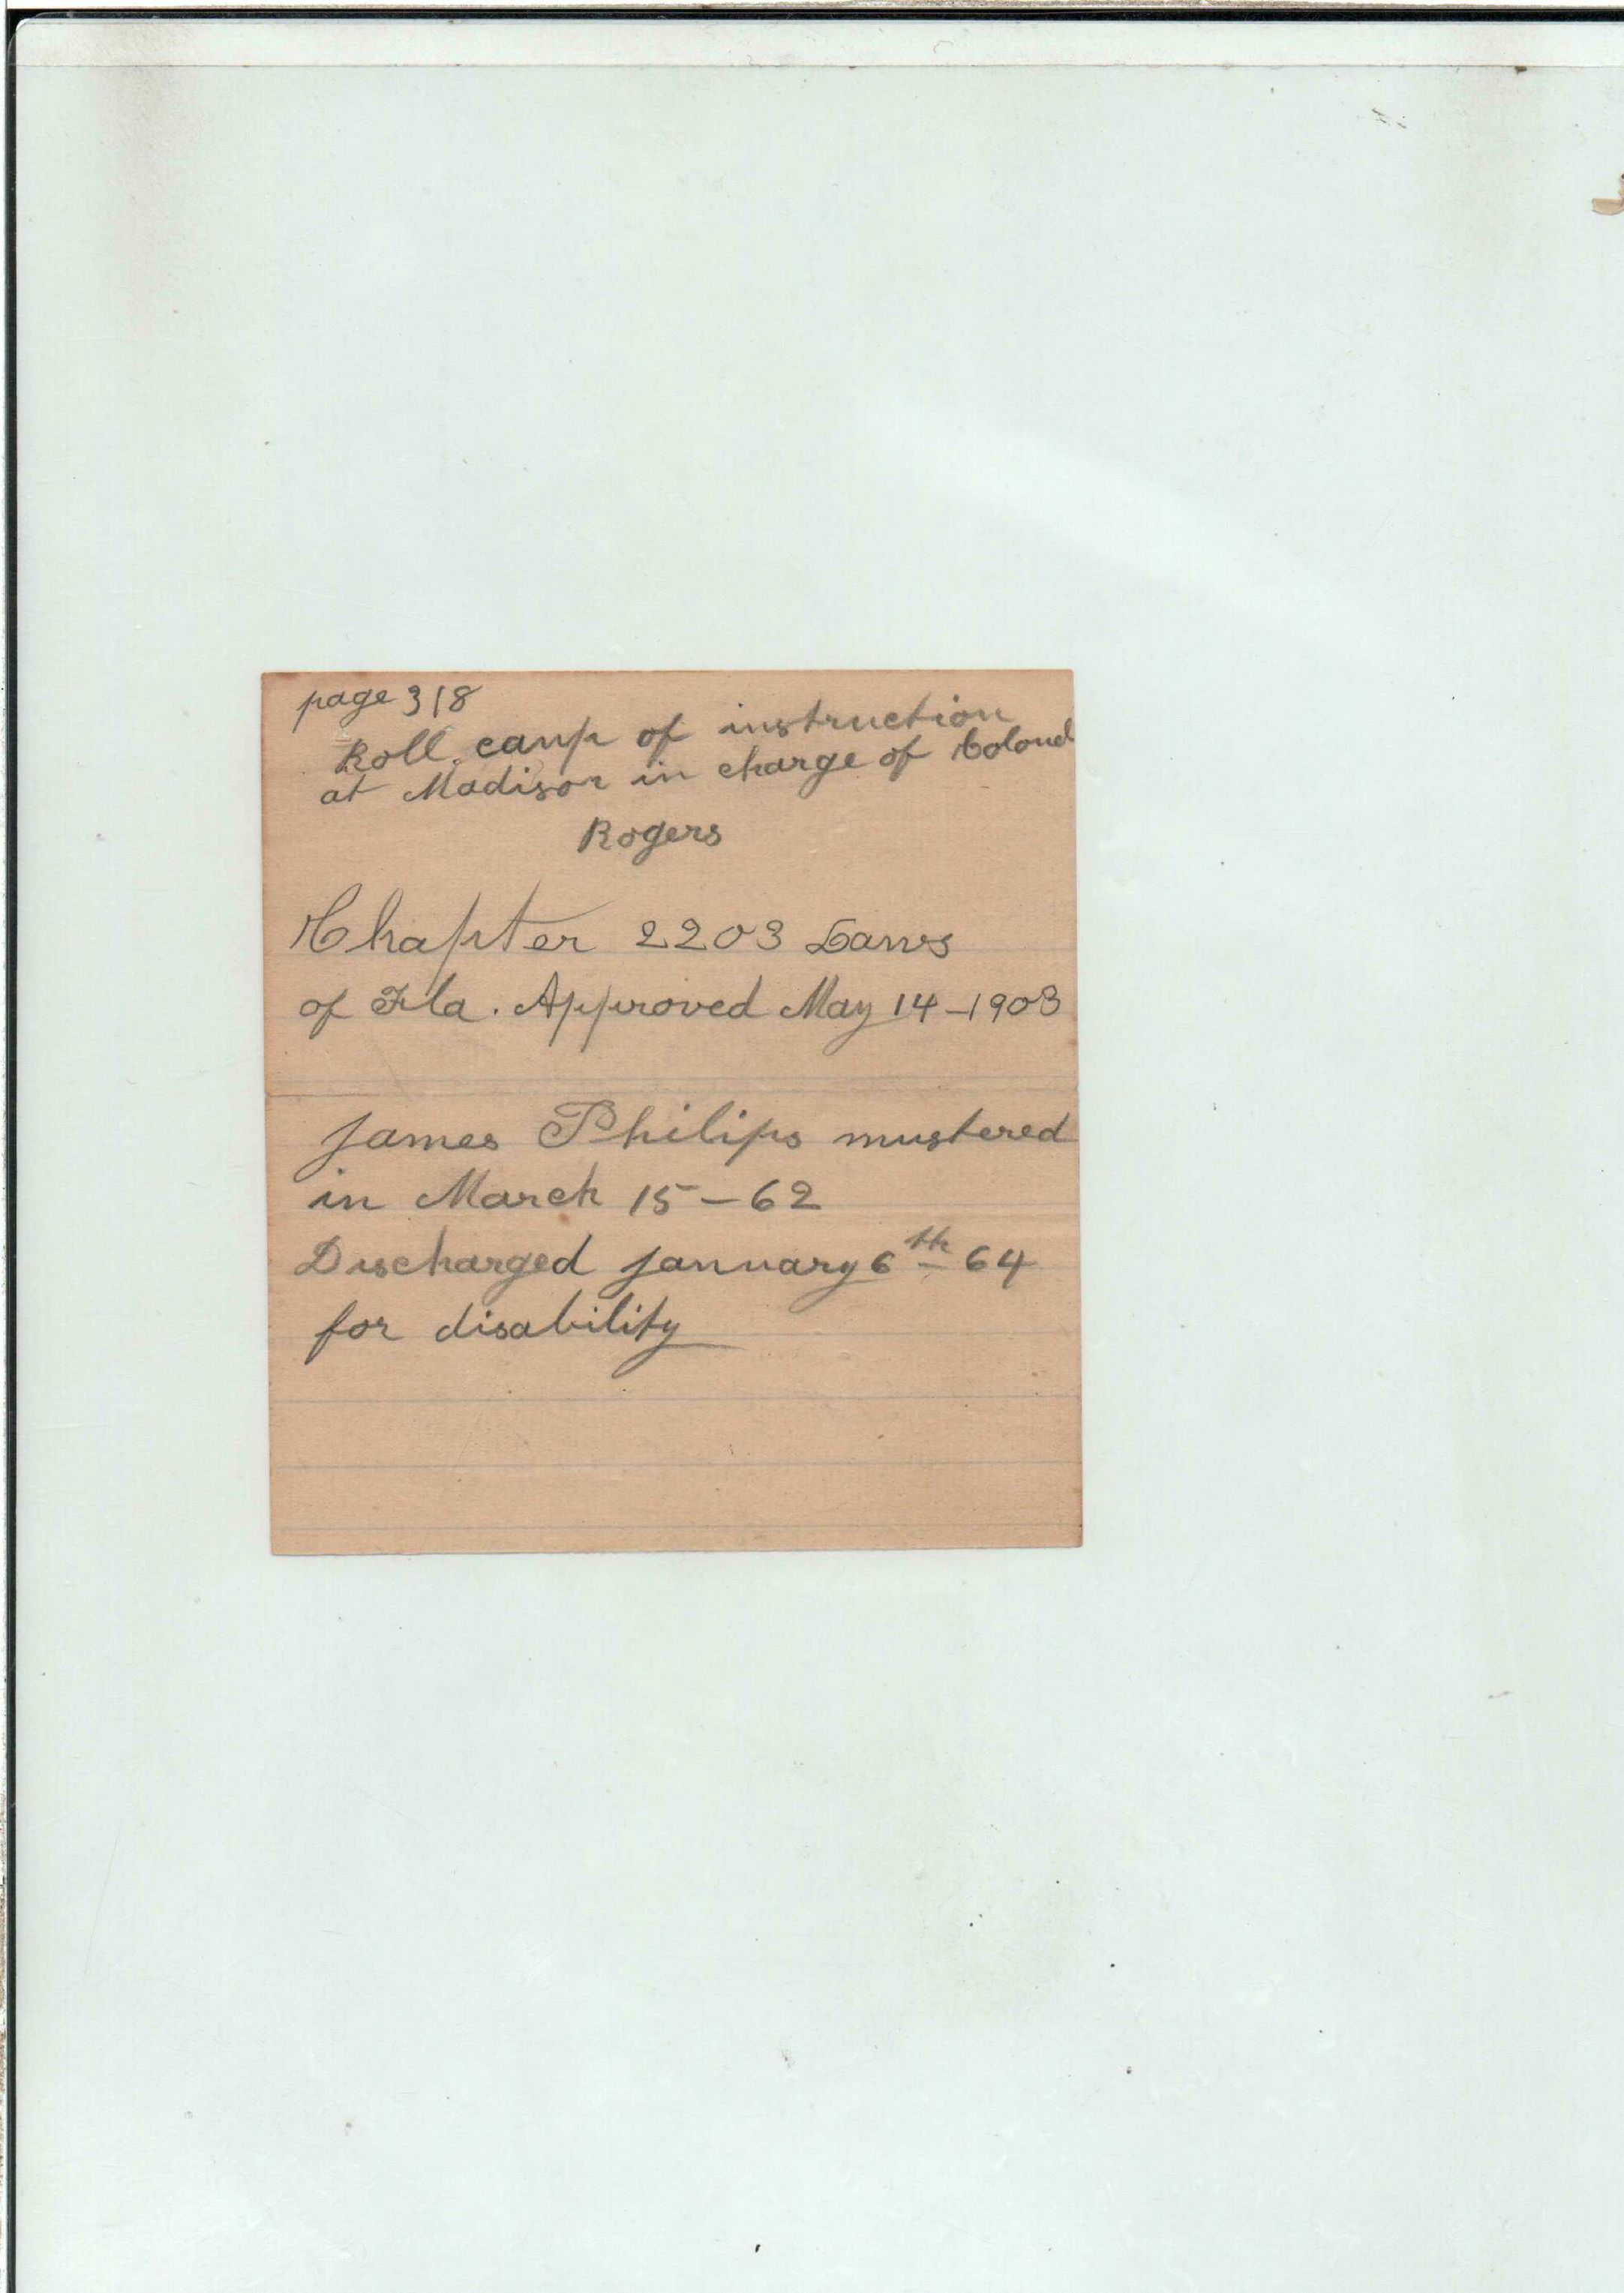 page 318
Roll camp of instruction
at Madison in charge of Colonel
Rogers
Chapter 2203 Laws
of Fla. Approved May 14-1903
James Philips mustered
in March 15-62
Discharged January 6th - 64
for disability